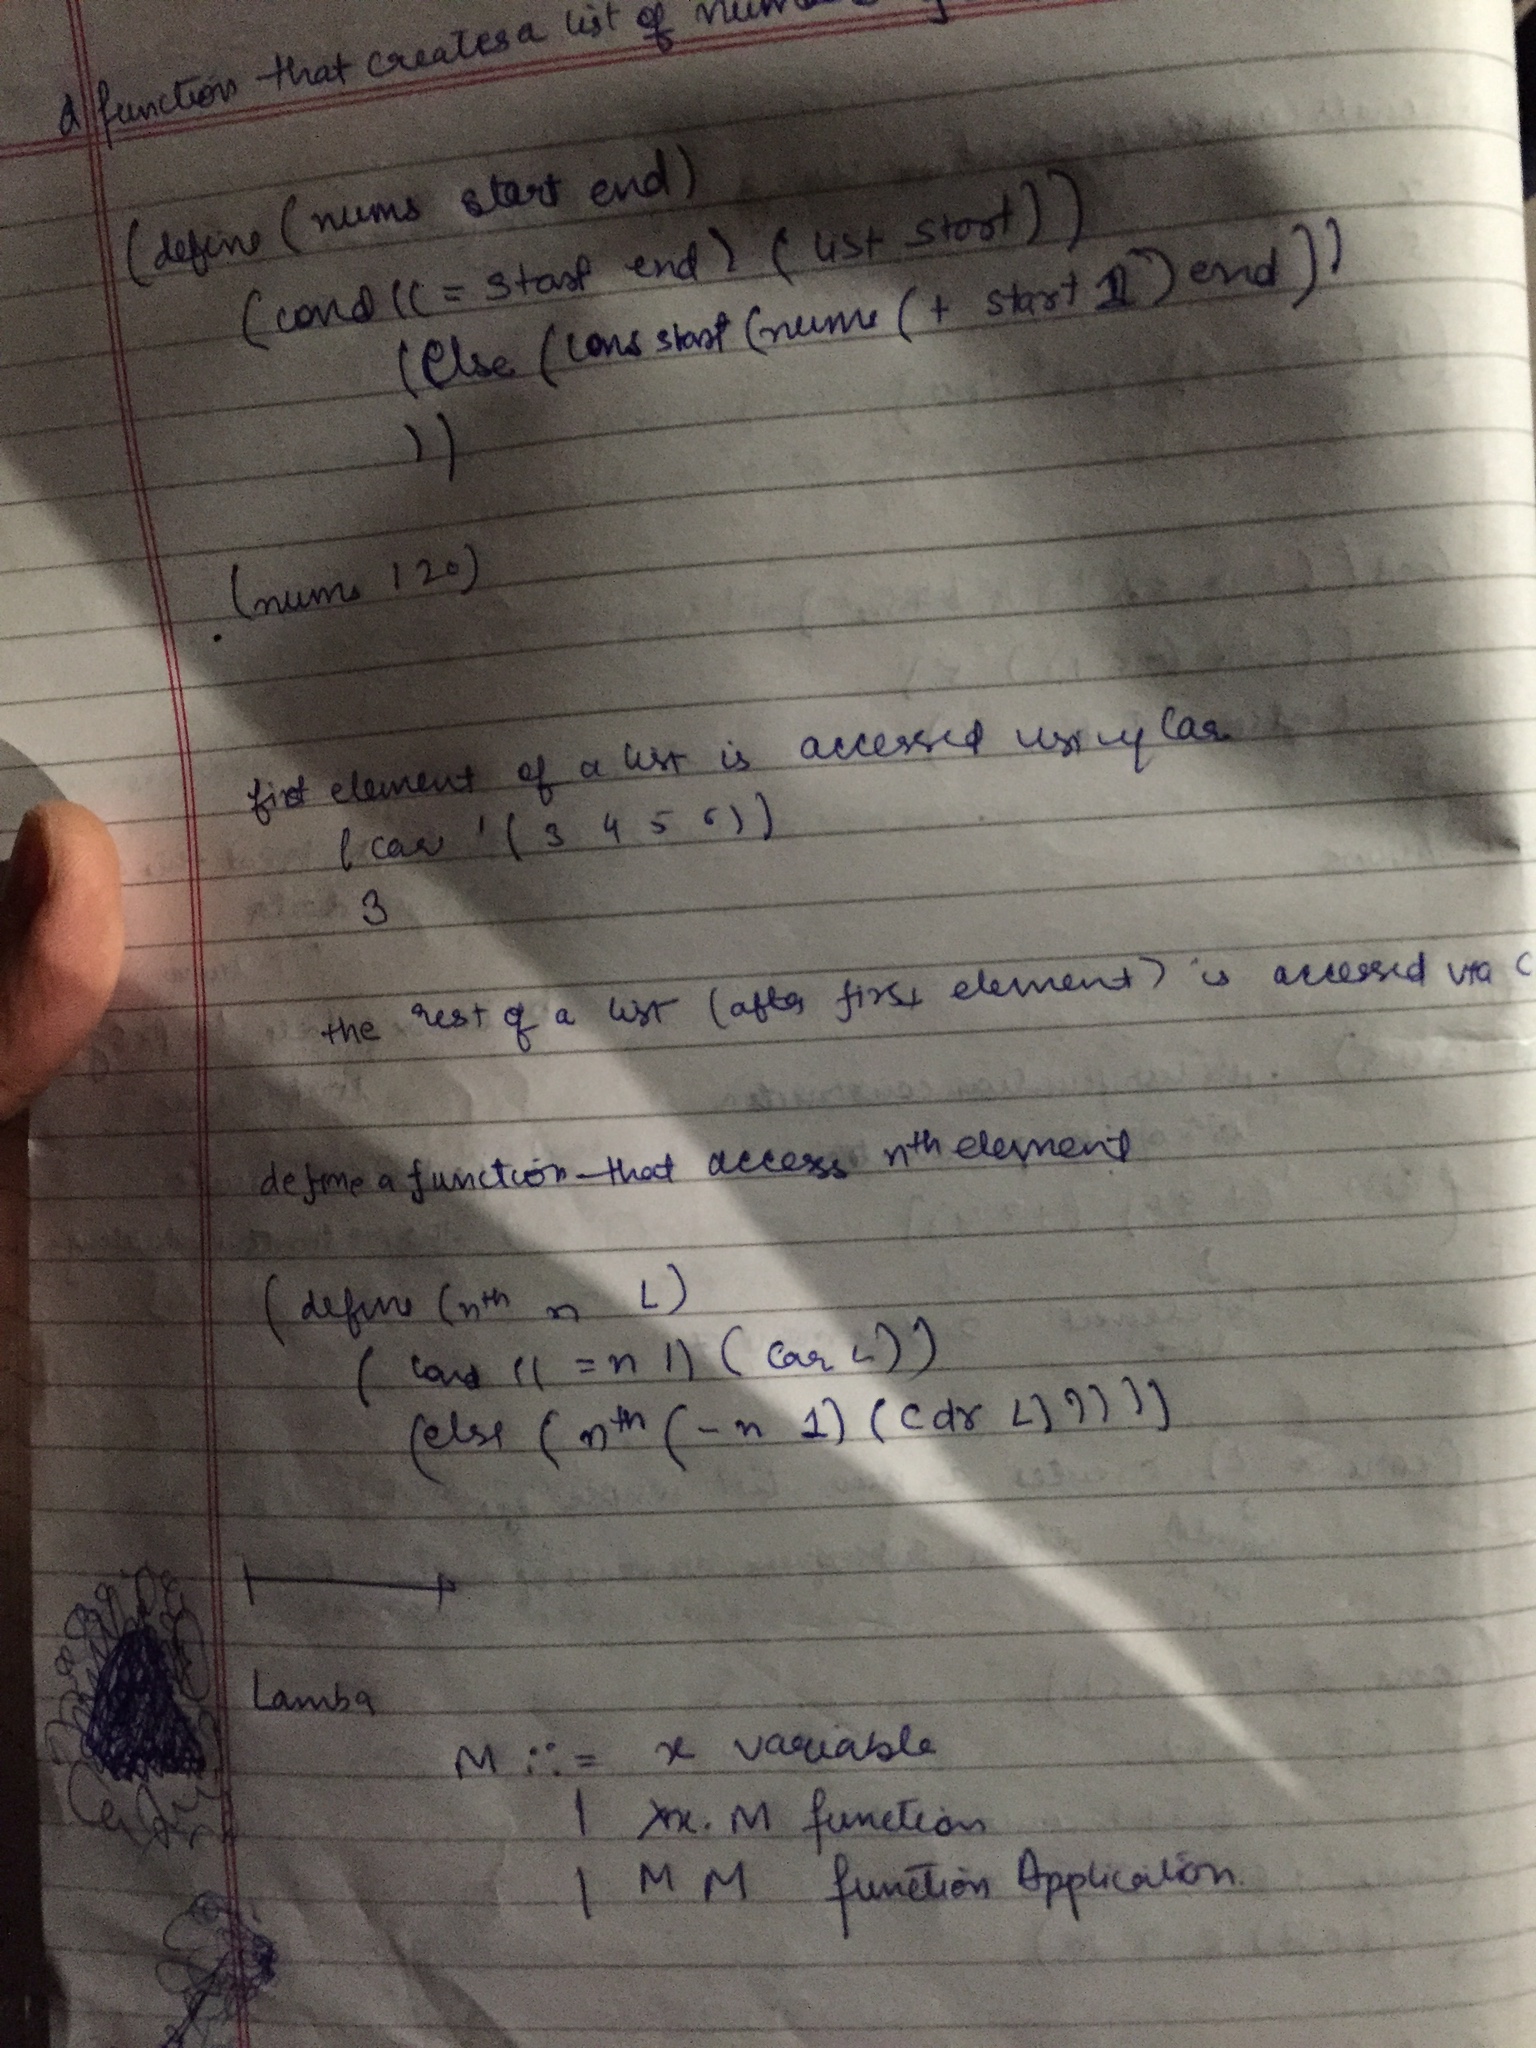 A function that creates a list of
(define (nums start end)
(cond ((= start end) (list start))
(else (cons start (nums (+ start 1) end))
))
(nums 1 20)
first element of a list is accessed using Car
(car '(3 4 5 6))
3
the rest of a list (after first element) is accessed via C
define a function that access nth element
(define (nth n L)
(cond ((= n 1) (car L))
(else (nth (- n 1) (cdr L)))))
Lamba
M ::= x variable
| λx. M function
| M M function Application.